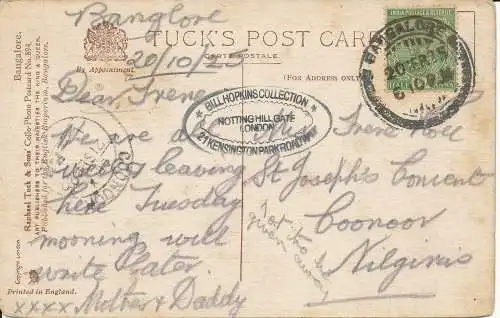 Banglore
20/10/25
TUCK'S POST CARD
CARTE POSTALE
By Appointment.
(FOR ADDRESS ONLY.)
INDIA POSTAGE & REVENUE
HALF ANNA
BANGALORE
Dear Irene
We are all
well leaving
here Tuesday
morning will
write later
xxxx Mother & Daddy
Miss Irene
St Joseph's Convent
Coonoor
Nilgiris
BILL HOPKINS COLLECTION
NOTTING HILL GATE
LONDON
21 KENSINGTON PARK ROAD W11
COONOOR
Bangalore.
Raphael Tuck & Sons' Collo-Photo Postcard No. 894.
ART PUBLISHERS TO THEIR MAJESTIES THE KING & QUEEN.
Published for the English Emporium, Bangalore.
Copyright London
Printed in England.